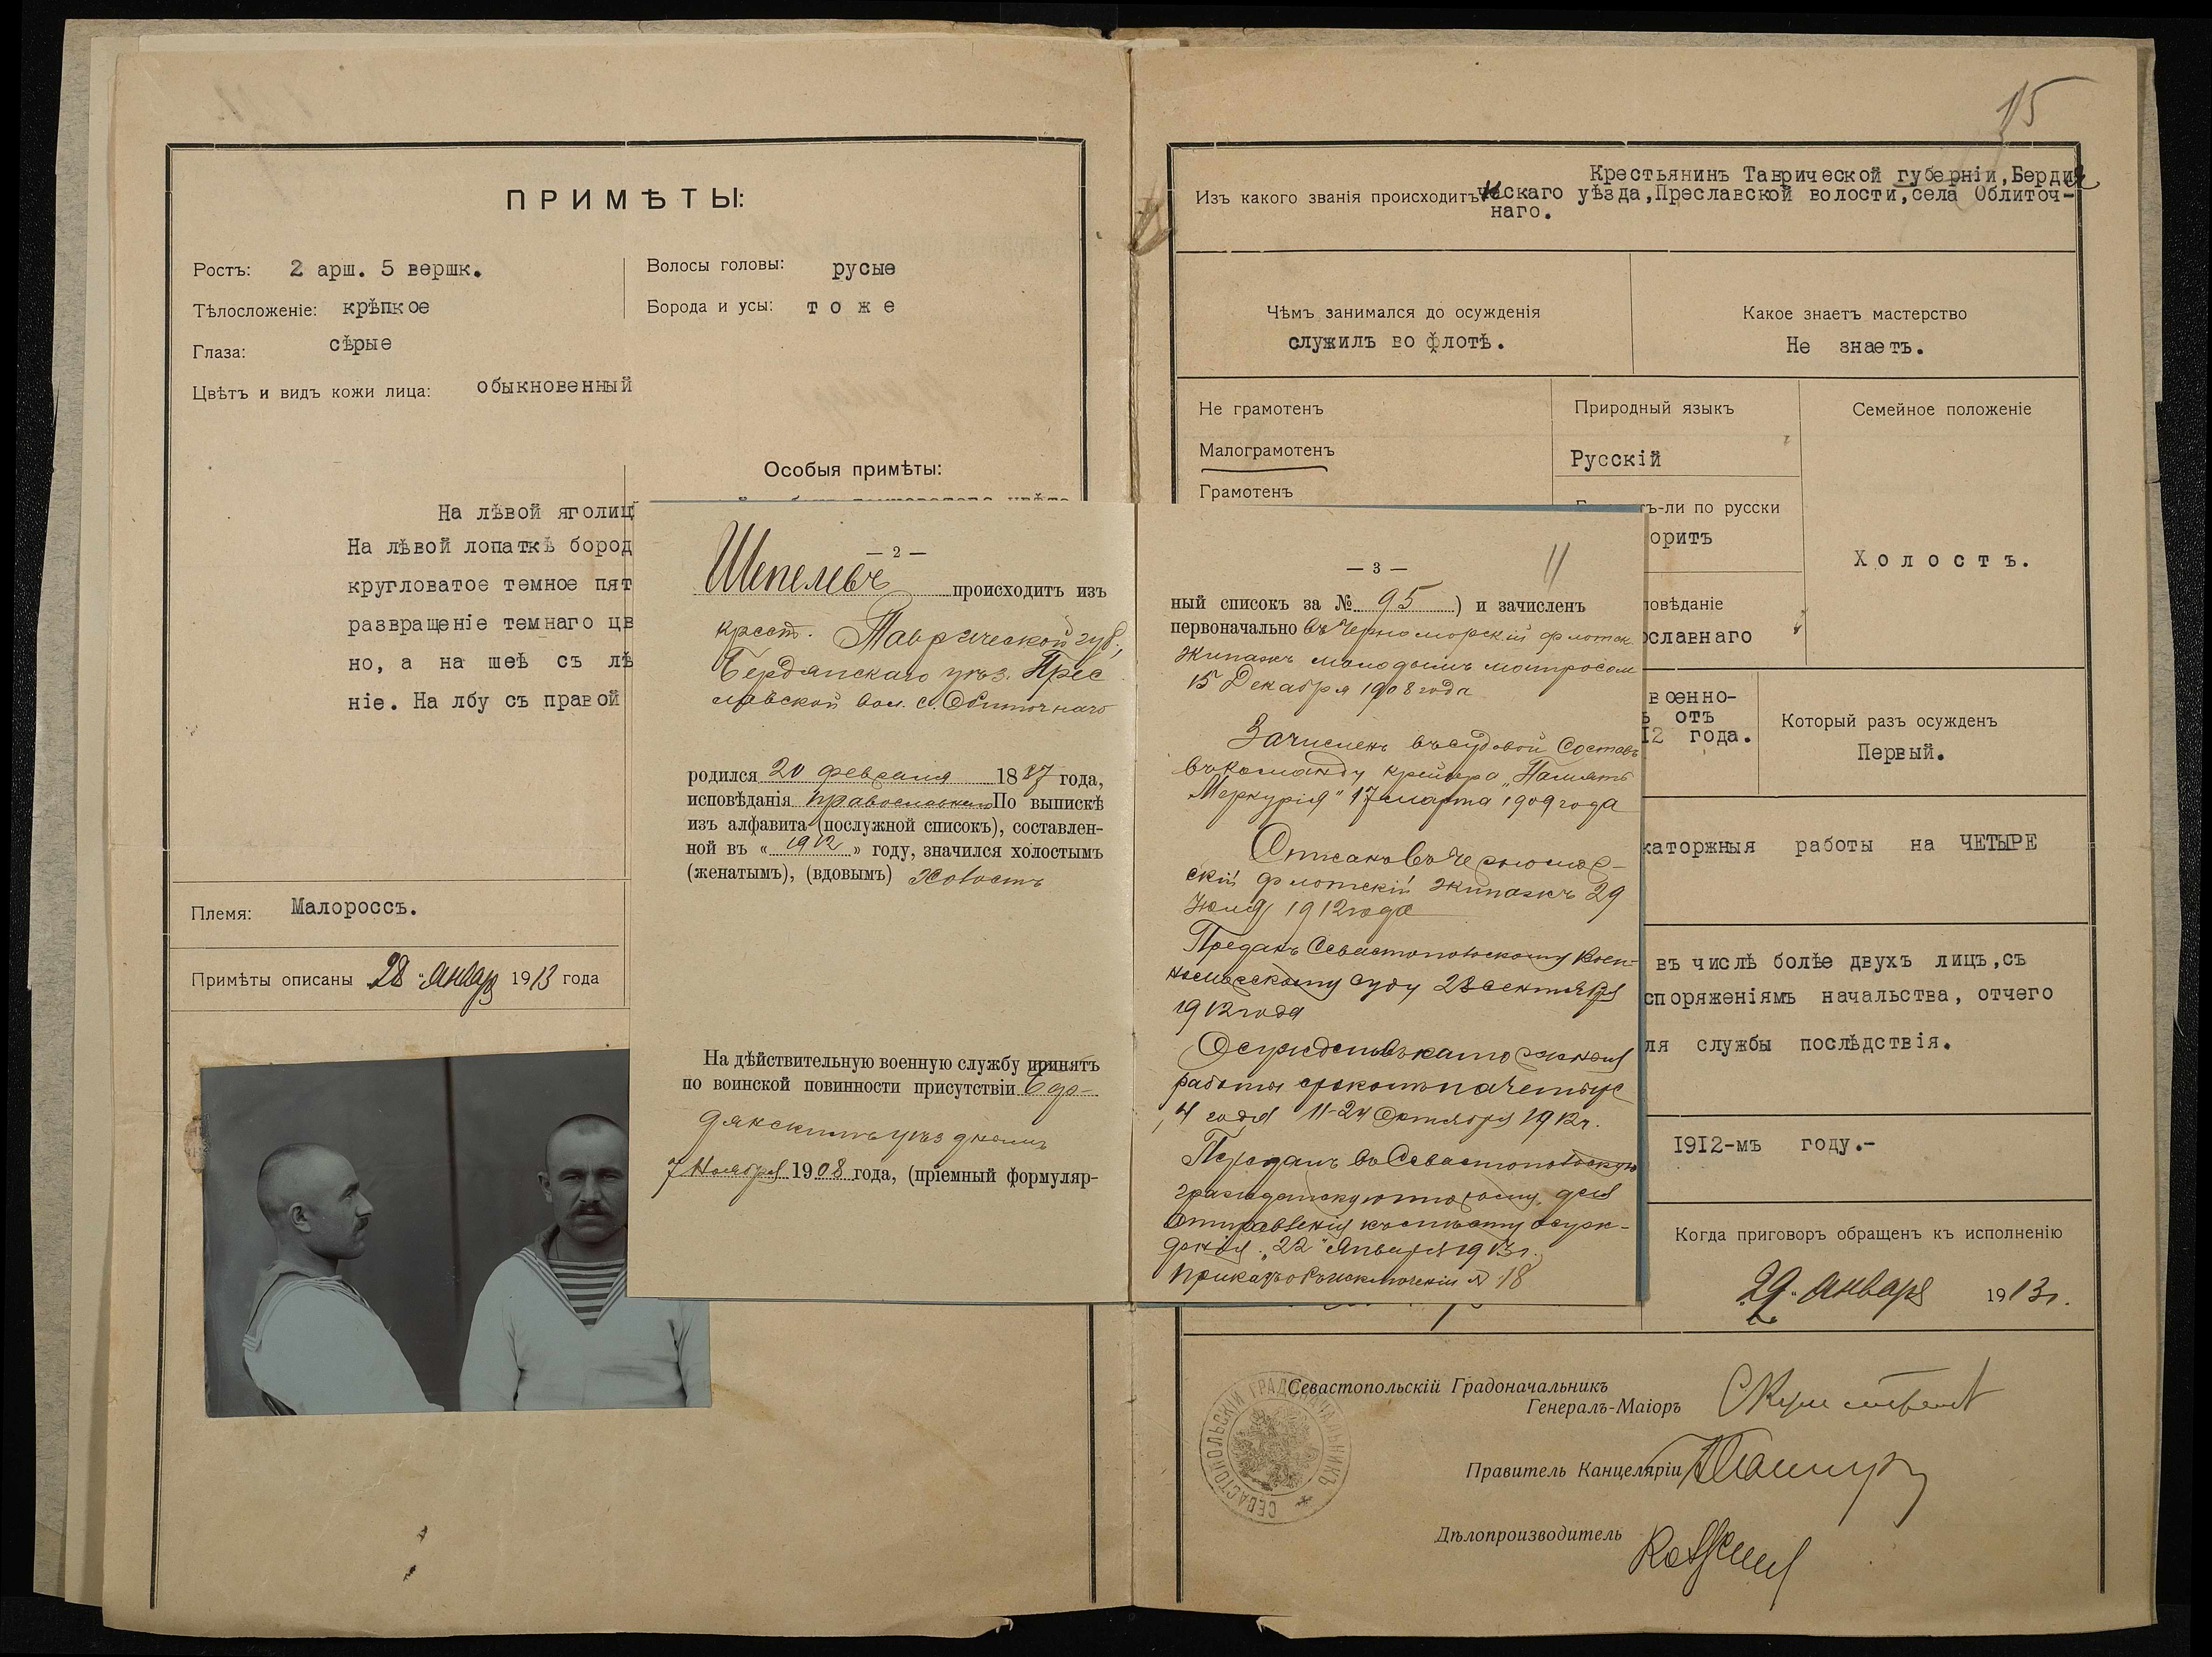 ПРИМѢТЫ:
Ростъ: 2 арш. 5 вершк.
Тѣлосложеніе: крѣпкое
Глаза: сѣрые
Цвѣтъ и видъ кожи лица: обыкновенный
Волосы головы: русые
Борода и усы: тоже
Особыя примѣты:
На лѣвой ягодиц
На лѣвой лопаткѣ бород
кругловатое темное пят
развращеніе темнаго цв
но, а на шеѣ съ лѣ
ніе. На лбу съ правой
Племя: Малороссъ.
Примѣты описаны 28 января 1913 года
— 2 —
Шепелевъ происходитъ изъ
крест. Таврической губ.,
Бердянскаго уѣз. Прес
лавской вол. с. Обиточнаго
родился 20 февраля 1887 года,
исповѣданія православнаго По выпискѣ
изъ алфавита (послужной списокъ), составлен-
ной въ « 1912 » году, значился холостымъ
(женатымъ), (вдовымъ) Холостъ
На дѣйствительную военную службу принятъ
по воинской повинности присутствіи Бер-
дянскимъ уѣзднымъ
7 Ноября 1908 года, (пріемный формуляр-
— 3 —
11
ный списокъ за № 95 ) и зачисленъ
первоначально въ Черноморскій флотск.
экипажъ молодымъ матросомъ
15 Декабря 1908 года
Зачисленъ въ судовой Составъ
въ команду крейсера „Память
Меркурія" 17 марта 1909 года
Списанъ въ Черномор-
скій флотскій экипажъ 29
Іюля 1912 года
Преданъ Севастопольскому Воен-
номорскому суду 28 сентября
1912 года
Осужденъ въ каторжныя
работы срокомъ на четыре
4 года 11-24 Октября 1912 г.
Переданъ въ Севастопольскую
гражданскую тюрьму для
отправленія къ мѣсту осуж-
денія „22" Января 1913 г.
Приказъ объ исключеніи № 18
15
Изъ какого званія происходитъ Крестьянинъ Таврической губерніи, Бердян
скаго уѣзда, Преславской волости, села Облиточ-
наго.
Чѣмъ занимался до осужденія
служилъ во флотѣ.
Какое знаетъ мастерство
Не знаетъ.
Не грамотенъ
Малограмотенъ
Грамотенъ
Природный языкъ
Русскій
ъ-ли по русски
оритъ
повѣданіе
ославнаго
Семейное положеніе
Холостъ.
военно-
отъ
12 года.
Который разъ осужденъ
Первый.
каторжныя работы на ЧЕТЫРЕ
въ числѣ болѣе двухъ лицъ, съ
споряженіямъ начальства, отчего
ля службы послѣдствія.
1912-мъ году.-
Когда приговоръ обращенъ къ исполненію
29 января 1913 г.
Севастопольскій Градоначальникъ
Генералъ-Маіоръ
Правитель Канцеляріи
Дѣлопроизводитель
СЕВАСТОПОЛЬСКІЙ ГРАДОНАЧАЛЬНИКЪ